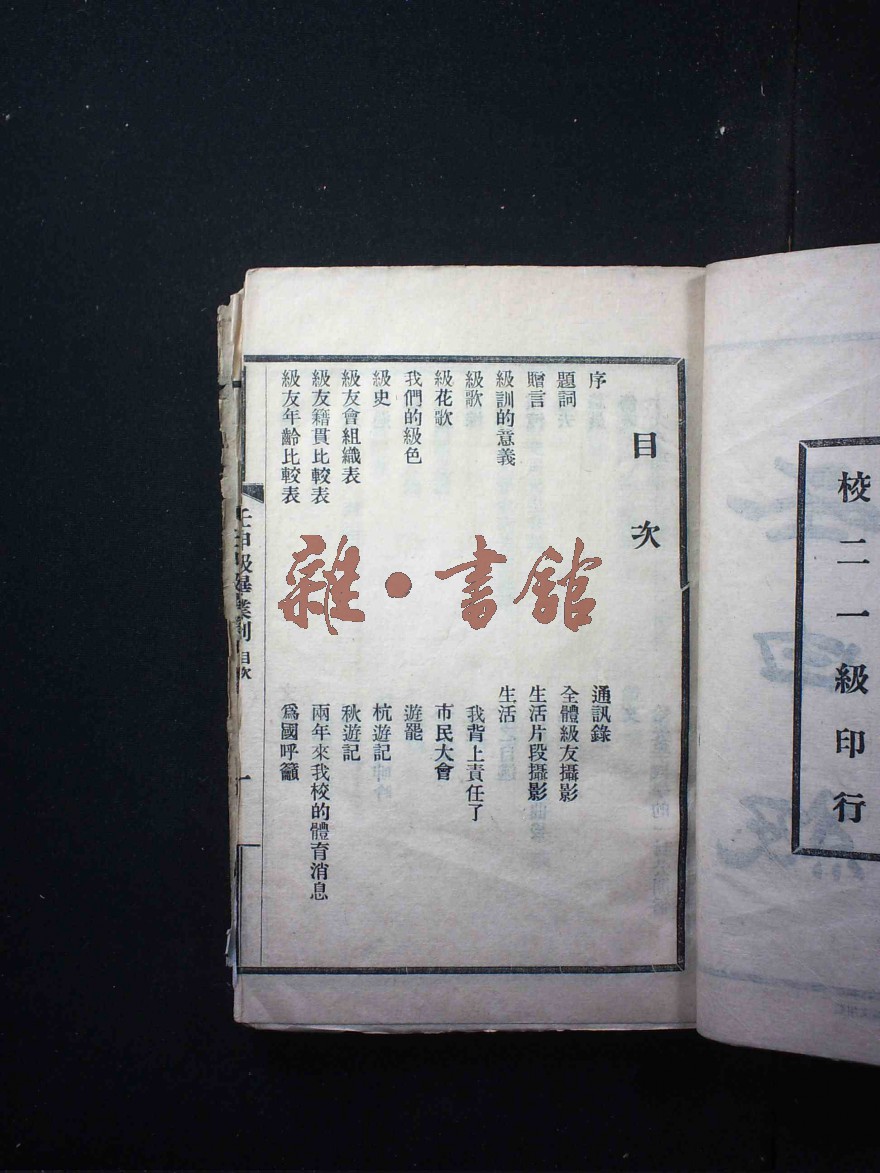 校二一級印行
目次
序
題詞
贈言
級訓的意義
級歌
級花歌
我們的級色
級史
級友會組織表
級友籍貫比較表
級友年齡比較表
通訊錄
全體級友攝影
生活片段攝影
生活
我背上責任了
市民大會
遊罷
杭遊記
秋遊記
兩年來我校的體育消息
為國呼籲
壬申級畢業刊 目次
一
雜·書館